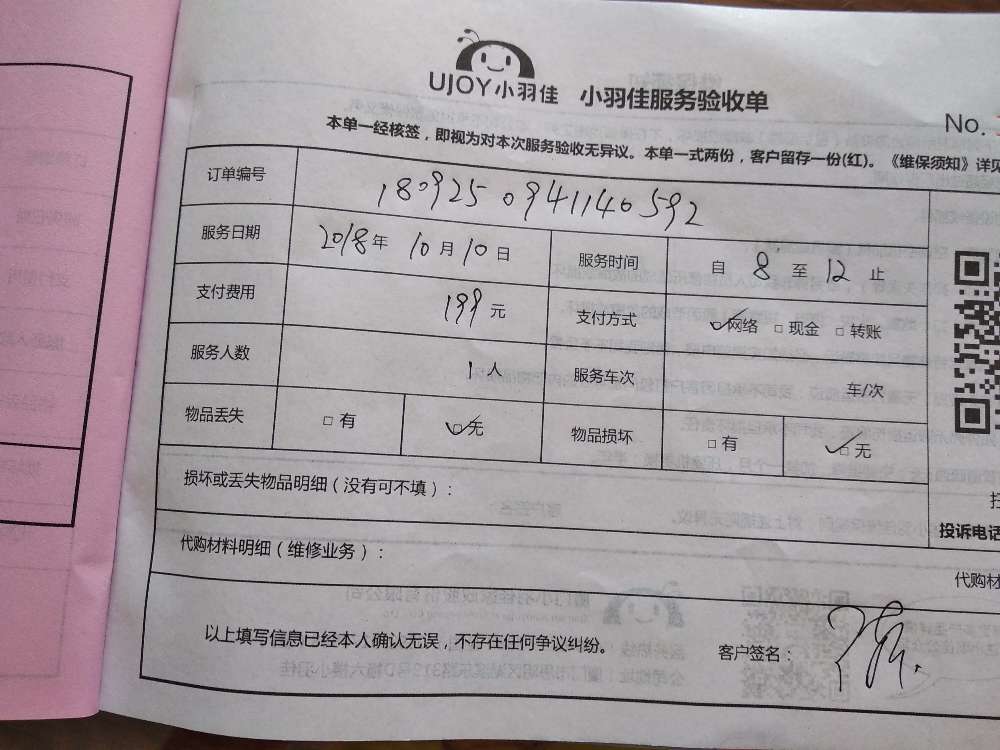 UJOY小羽佳 小羽佳服务验收单
No.
本单一经核签，即视为对本次服务验收无异议。本单一式两份，客户留存一份(红)。《维保须知》详见
订单编号 180925 0941140592
服务日期 2018年 10月10日 服务时间 自 8 至 12 止
支付费用 199元 支付方式 网络 □ 现金 □ 转账
服务人数 1人 服务车次 车/次
物品丢失 □ 有 □ 无 物品损坏 □ 有 □ 无
损坏或丢失物品明细（没有可不填）：
投诉电话
代购材料明细（维修业务）：
代购材
以上填写信息已经本人确认无误，不存在任何争议纠纷。 客户签名：